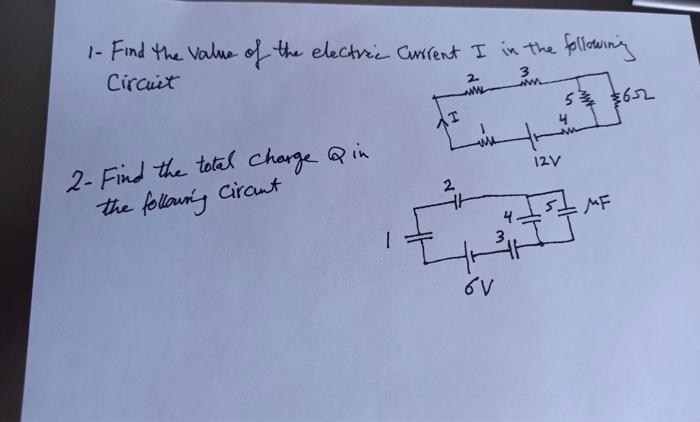 1- Find the value of the electric Current I in the following
Circuit
2 3
5 6Ω
I
1 4
12V
2- Find the total charge Q in
the following Circut
2
1 4 5 μF
3
6V